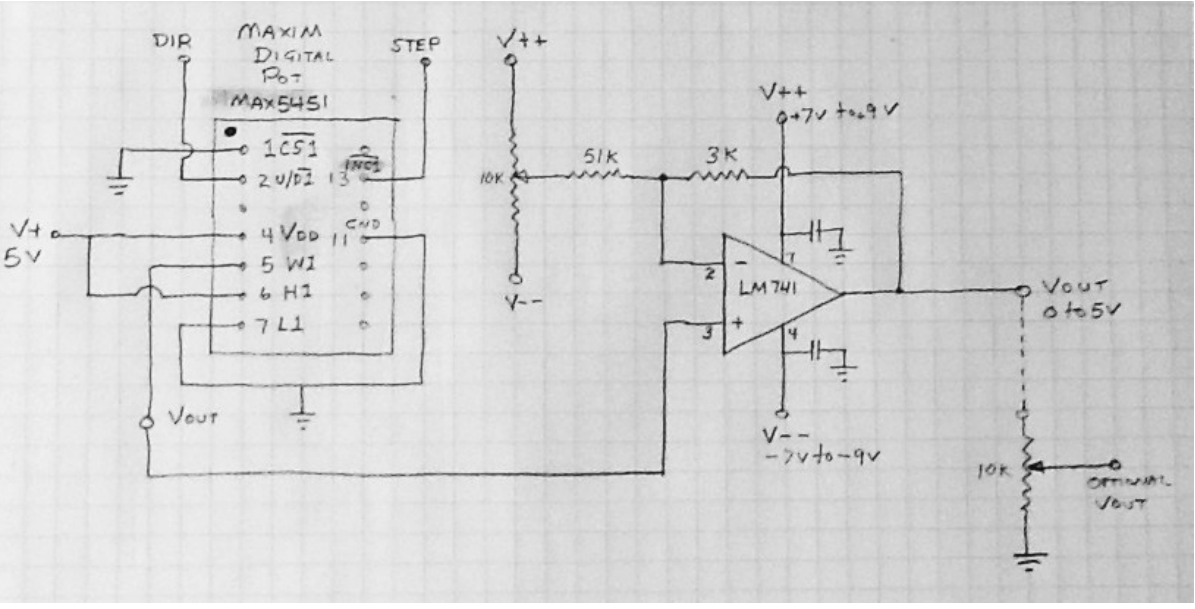 MAXIM
DIGITAL
POT
MAX5451
DIR
STEP
1 C̅S̅1̅
2 U/D̅1̅
I̅N̅C̅1̅
13
V+
5V
4 VDD
GND
11
5 W1
6 H1
7 L1
VOUT
V++
10K
V--
51K
3K
V++
+7V to+9V
7
2 -
LM741
3 +
4
V--
-7V to -9V
VOUT
0 to 5V
10K
OPTIONAL
VOUT